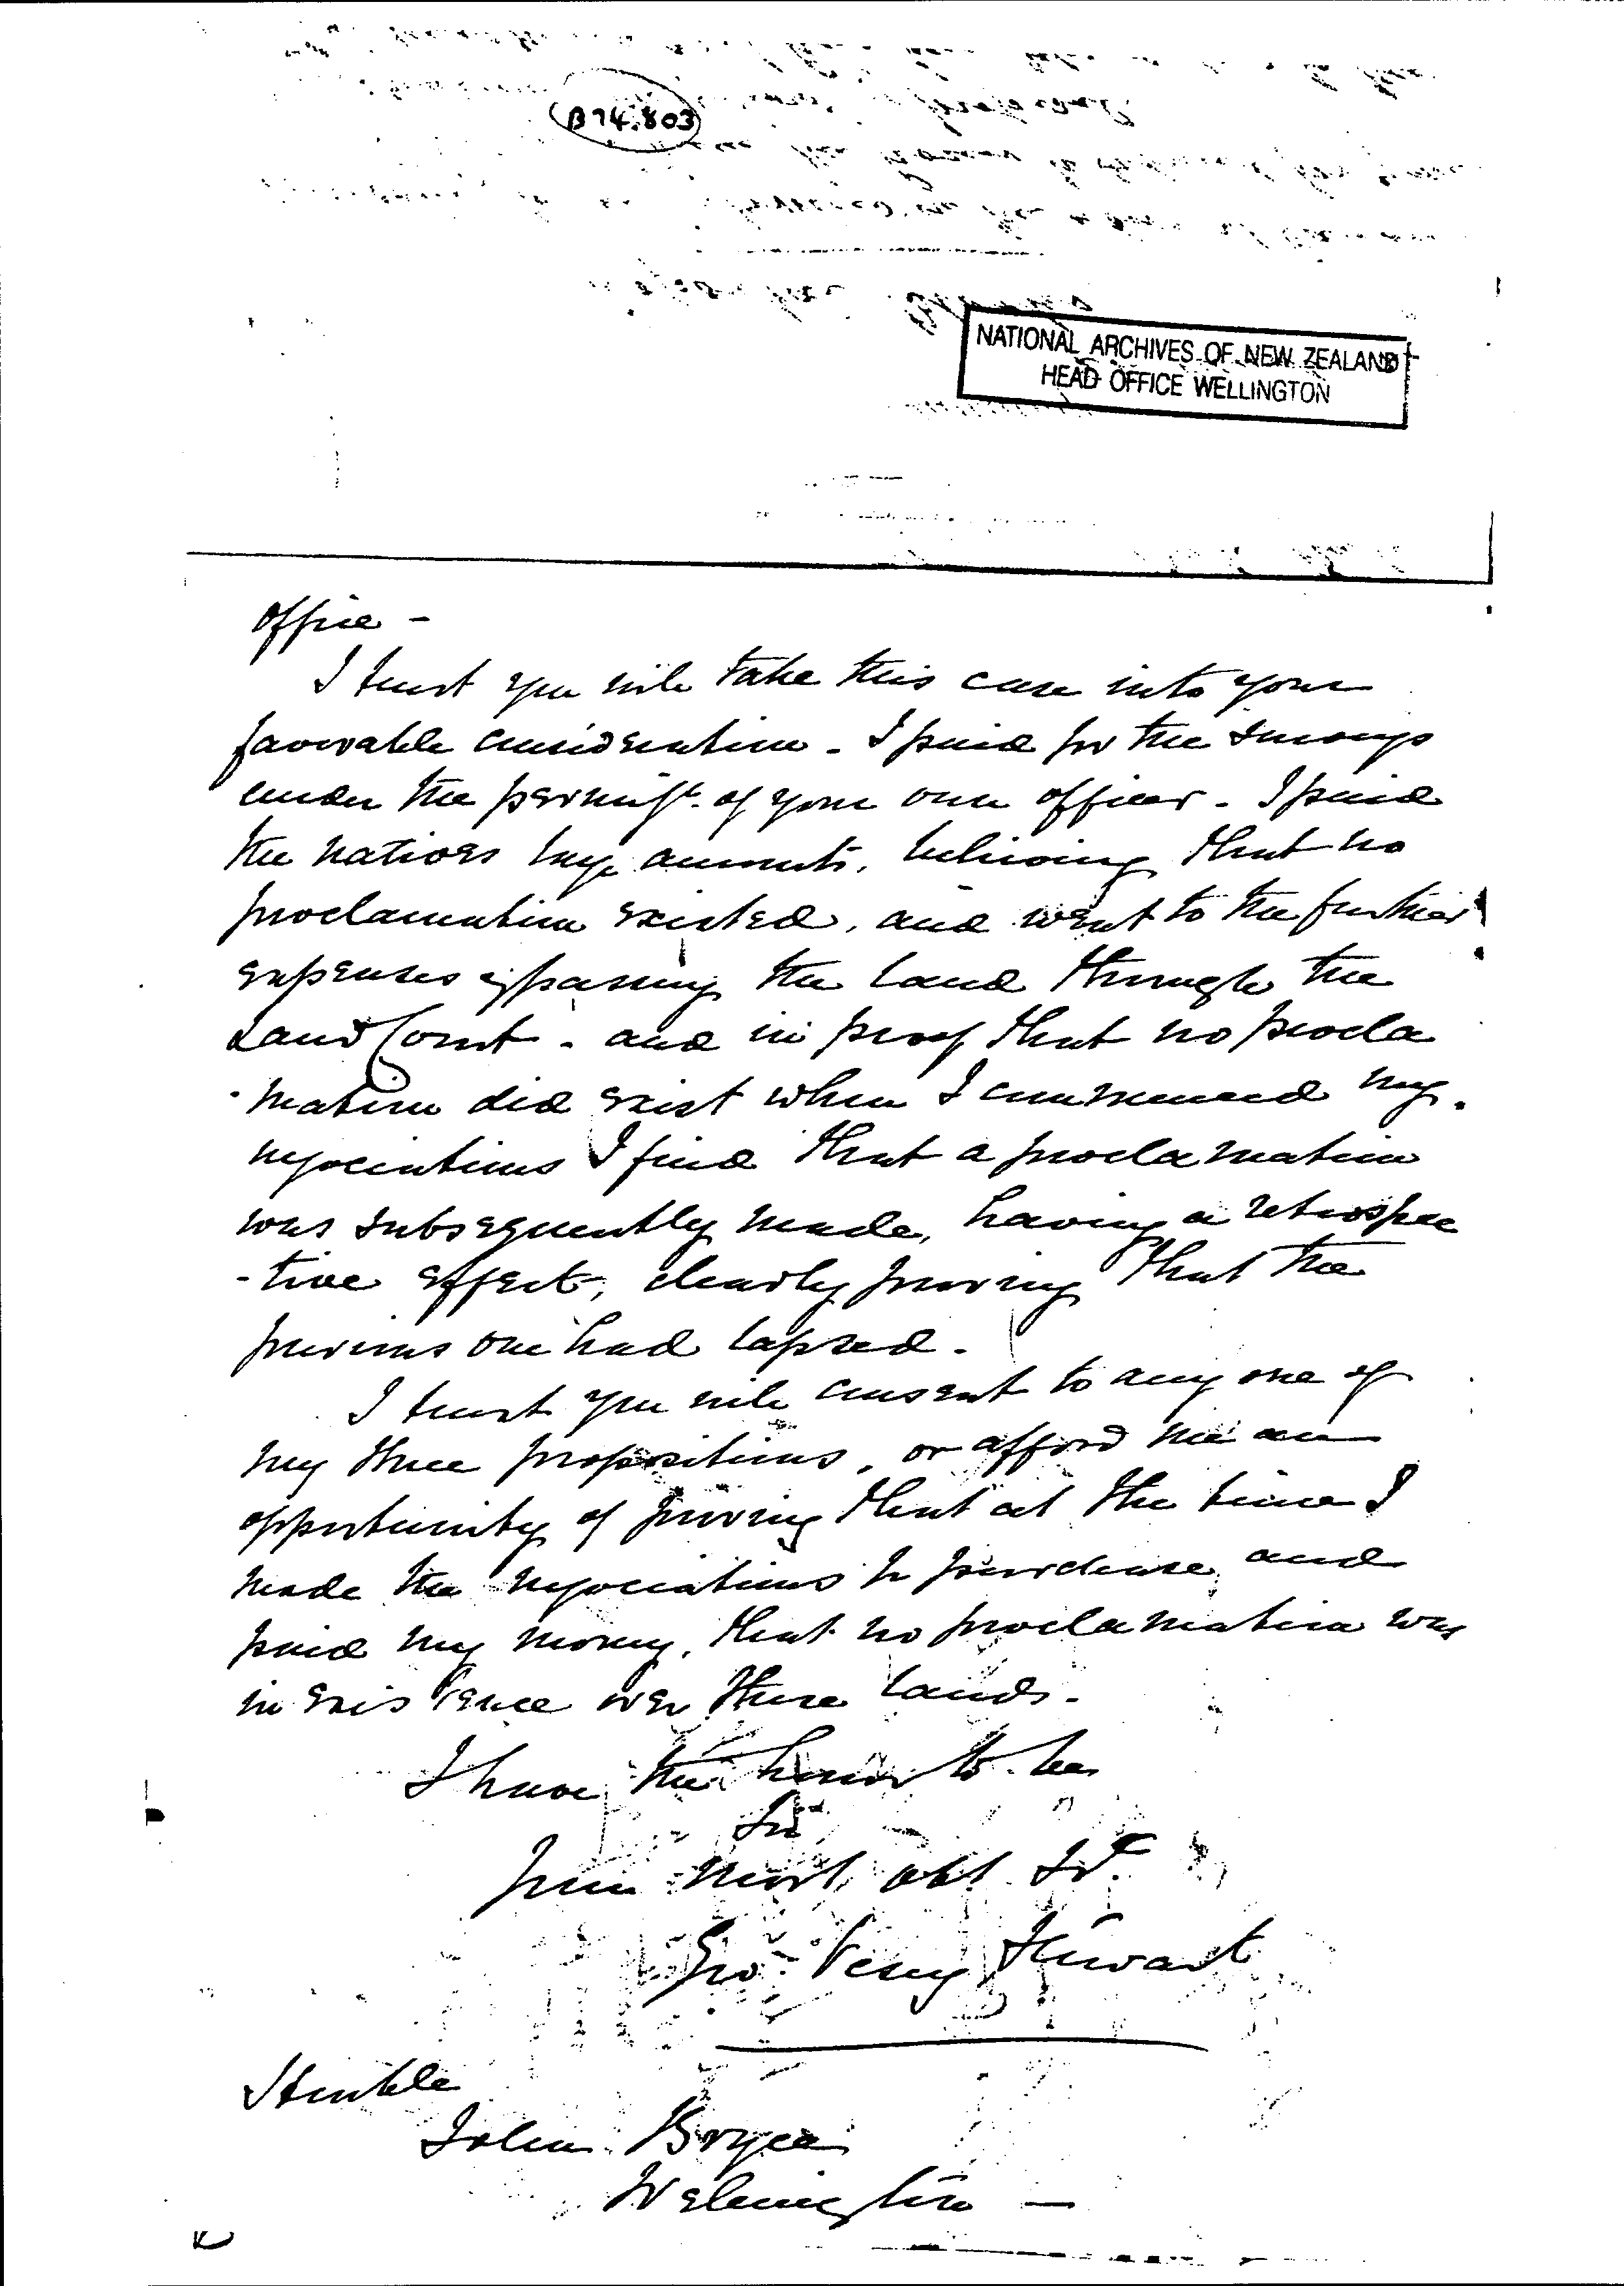 B94.803
NATIONAL ARCHIVES OF NEW ZEALAND
HEAD OFFICE WELLINGTON
office -
I trust you will take this case into your
favorable consideration - I paid for the surveys
under the permisst. of your own officer - I paid
the natives large amounts, believing that no
proclamation existed, and went to the further
expenses of passing the land through the
Land Court - and in proof that no procla
-mation did exist when I commenced my
negociations I find that a proclamation
was subsequently made, having a retrospec
-tive effect, clearly proving that the
previous one had lapsed.
I trust you will consent to any one of
my three propositions, or afford me an
opportunity of proving that at the time I
made the negociations to purchase and
paid my money, that no proclamation was
in existence over these lands.
I have the honor to be
Sir
Your most obt St.
Geo. Vesey Stewart
Honble
John Bryce
Wellington —